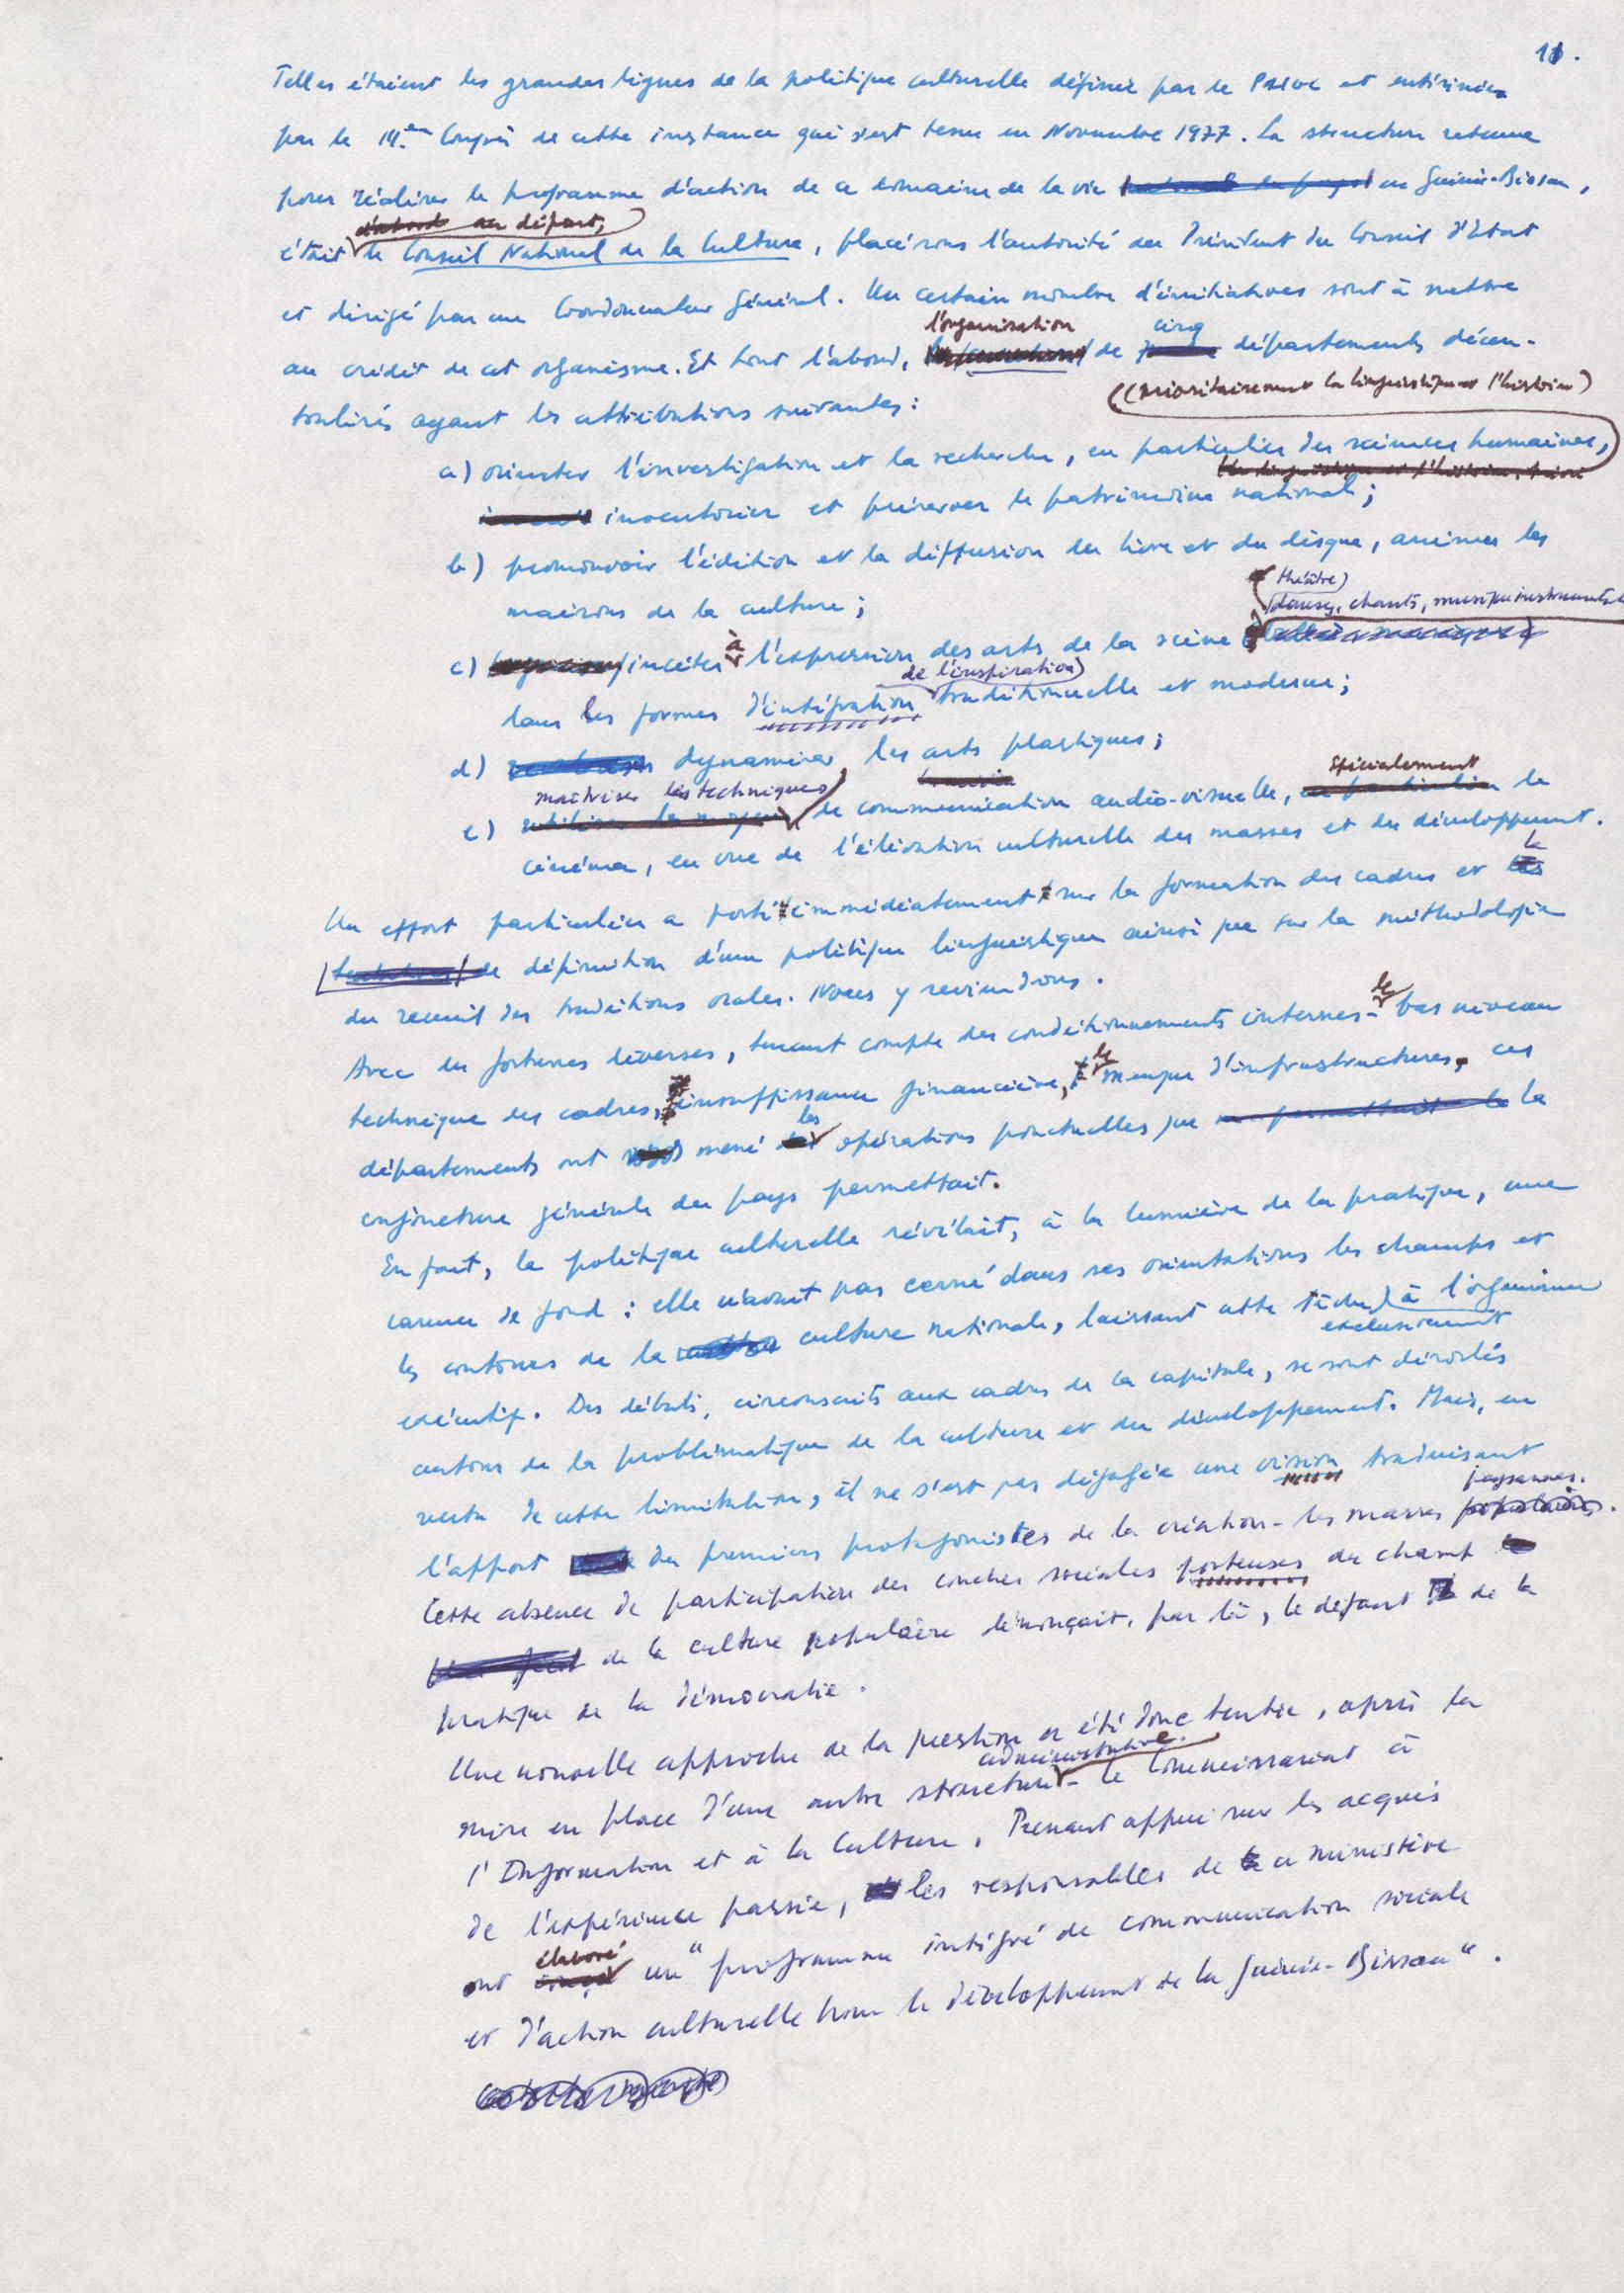 11.
Telles étaient les grandes lignes de la politique culturelle définie par le PAIGC et entérinée
par le III.ème Congrès de cette instance qui s'est tenu en Novembre 1977. La structure retenue
pour réaliser le programme d'action de ce domaine de la vie en Guinée-Bissau,
d'abord au départ,
était le Conseil National de la Culture, placé sous l'autorité du Président du Conseil d'Etat
et dirigé par un Coordonnateur Général. Un certain nombre d'initiatives sont à mettre
l'organisation cinq
au crédit de cet organisme. Et tout d'abord, de départements décen-
(prioritairement la linguistique et l'histoire)
tralisés ayant les attributions suivantes :
a) orienter l'investigation et la recherche, en particulier des sciences humaines,
la linguistique et l'histoire,
inventorier et préserver le patrimoine national ;
b) promouvoir l'édition et la diffusion du livre et du disque, animer les
maisons de la culture ;
théâtre)
(danses, chants, musique instrumentale
c) inciter à l'expression des arts de la scène
de l'inspiration
dans les formes d'intégration traditionnelle et moderne ;
d) dynamiser les arts plastiques ;
maîtriser les techniques spécialement
e) utiliser les moyens de communication audio-visuelle, en particulier le
cinéma, en vue de l'élévation culturelle des masses et du développement.
la
Un effort particulier a porté immédiatement sur la formation des cadres et
de définition d'une politique linguistique ainsi que sur la méthodologie
du recueil des traditions orales. Nous y reviendrons.
Avec des fortunes diverses, tenant compte des conditionnements internes - le bas niveau
technique des cadres, insuffisance financière, le manque d'infrastructures, ces
départements ont mené les opérations ponctuelles que ne permettait la
conjoncture générale du pays permettait.
En fait, la politique culturelle révélait, à la lumière de la pratique, une
carence de fond : elle n'avait pas cerné dans ses orientations les champs et
les contours de la culture nationale, laissant cette tâche à l'organisme
exclusivement
exécutif. Des débats, circonscrits aux cadres de la capitale, se sont déroulés
autour de la problématique de la culture et du développement. Mais, en
vertu de cette limitation, il ne s'est pas dégagée une vision traduisant
paysannes.
l'apport des premiers protagonistes de la création - les masses populaires.
Cette absence de participation des couches sociales porteuses du champ
de la culture populaire dénonçait, par là, le défaut de la
pratique de la démocratie.
Une nouvelle approche de la question a été donc tentée, après la
administrative.
mise en place d'une autre structure - le Commissariat à
l'Information et à la Culture. Prenant appui sur les acquis
de l'expérience passée, les responsables de ce ministère
élaboré
ont conçu un "programme intégré de communication sociale
et d'action culturelle pour le développement de la Guinée-Bissau".